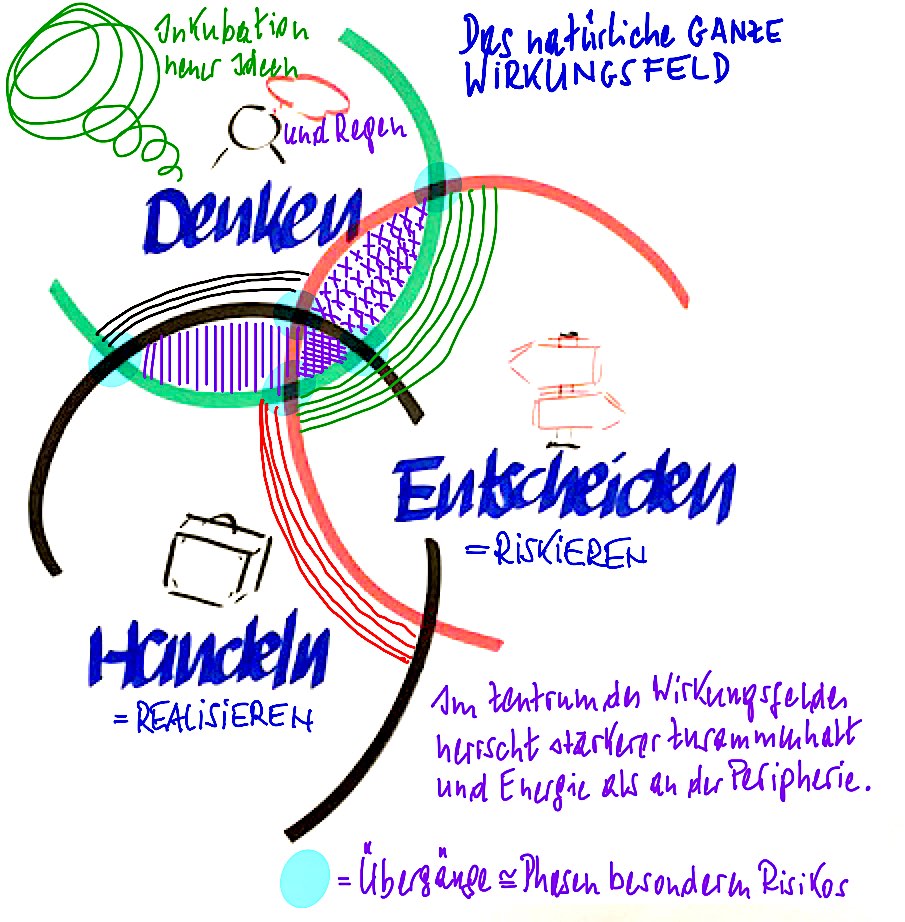 Inkubation
neuer Ideen
Das natürliche GANZE
WIRKUNGSFELD
und Regen
Denken
Entscheiden
= RISKIEREN
Handeln
= REALISIEREN
Im Zentrum des Wirkungsfeldes
herrscht stärkerer Zusammenhalt
und Energie als an der Peripherie.
= Übergänge ≅ Phasen besonderen Risikos